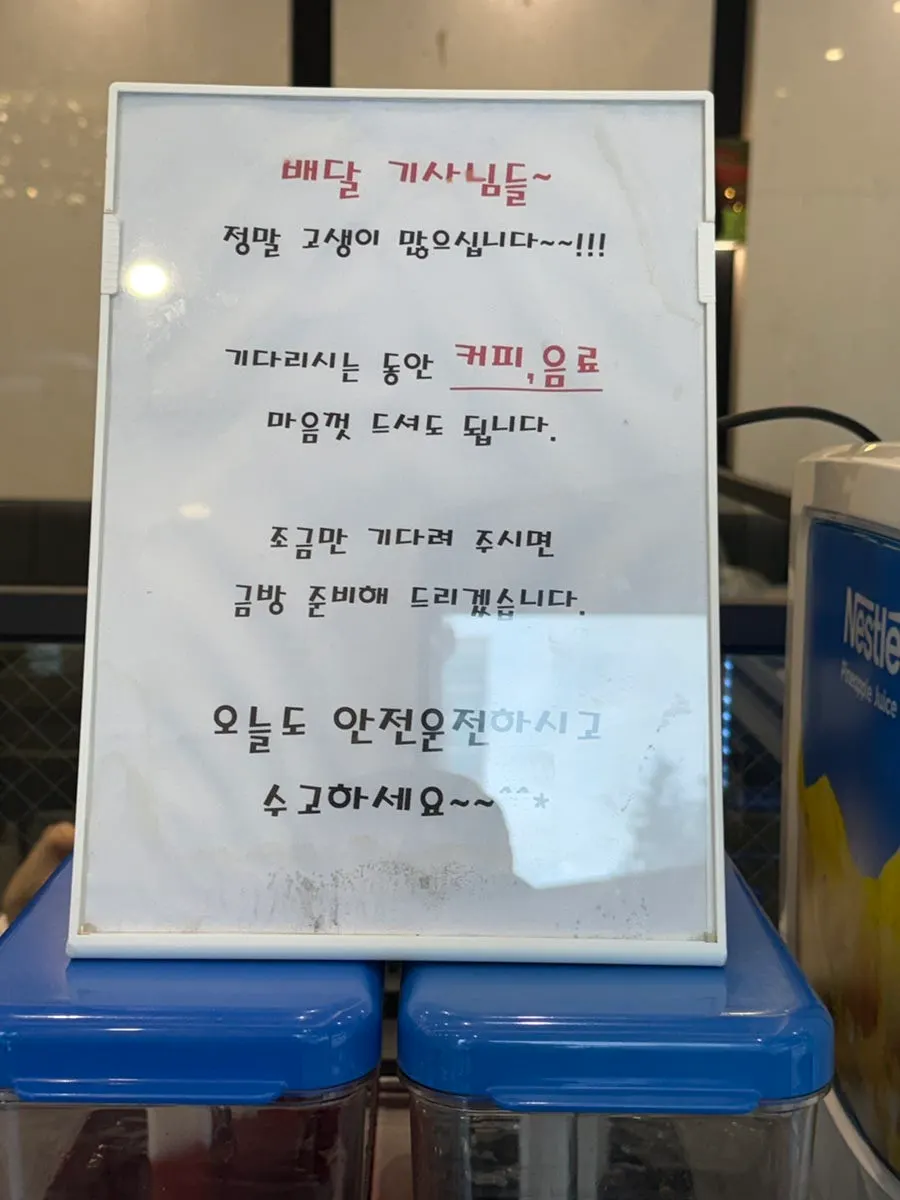 배달 기사님들~
정말 고생이 많으십니다~~!!!
기다리시는 동안 커피,음료
마음껏 드셔도 됩니다.
조금만 기다려 주시면
금방 준비해 드리겠습니다.
오늘도 안전운전하시고
수고하세요~~^^*
Nestlé
Pineapple Juice